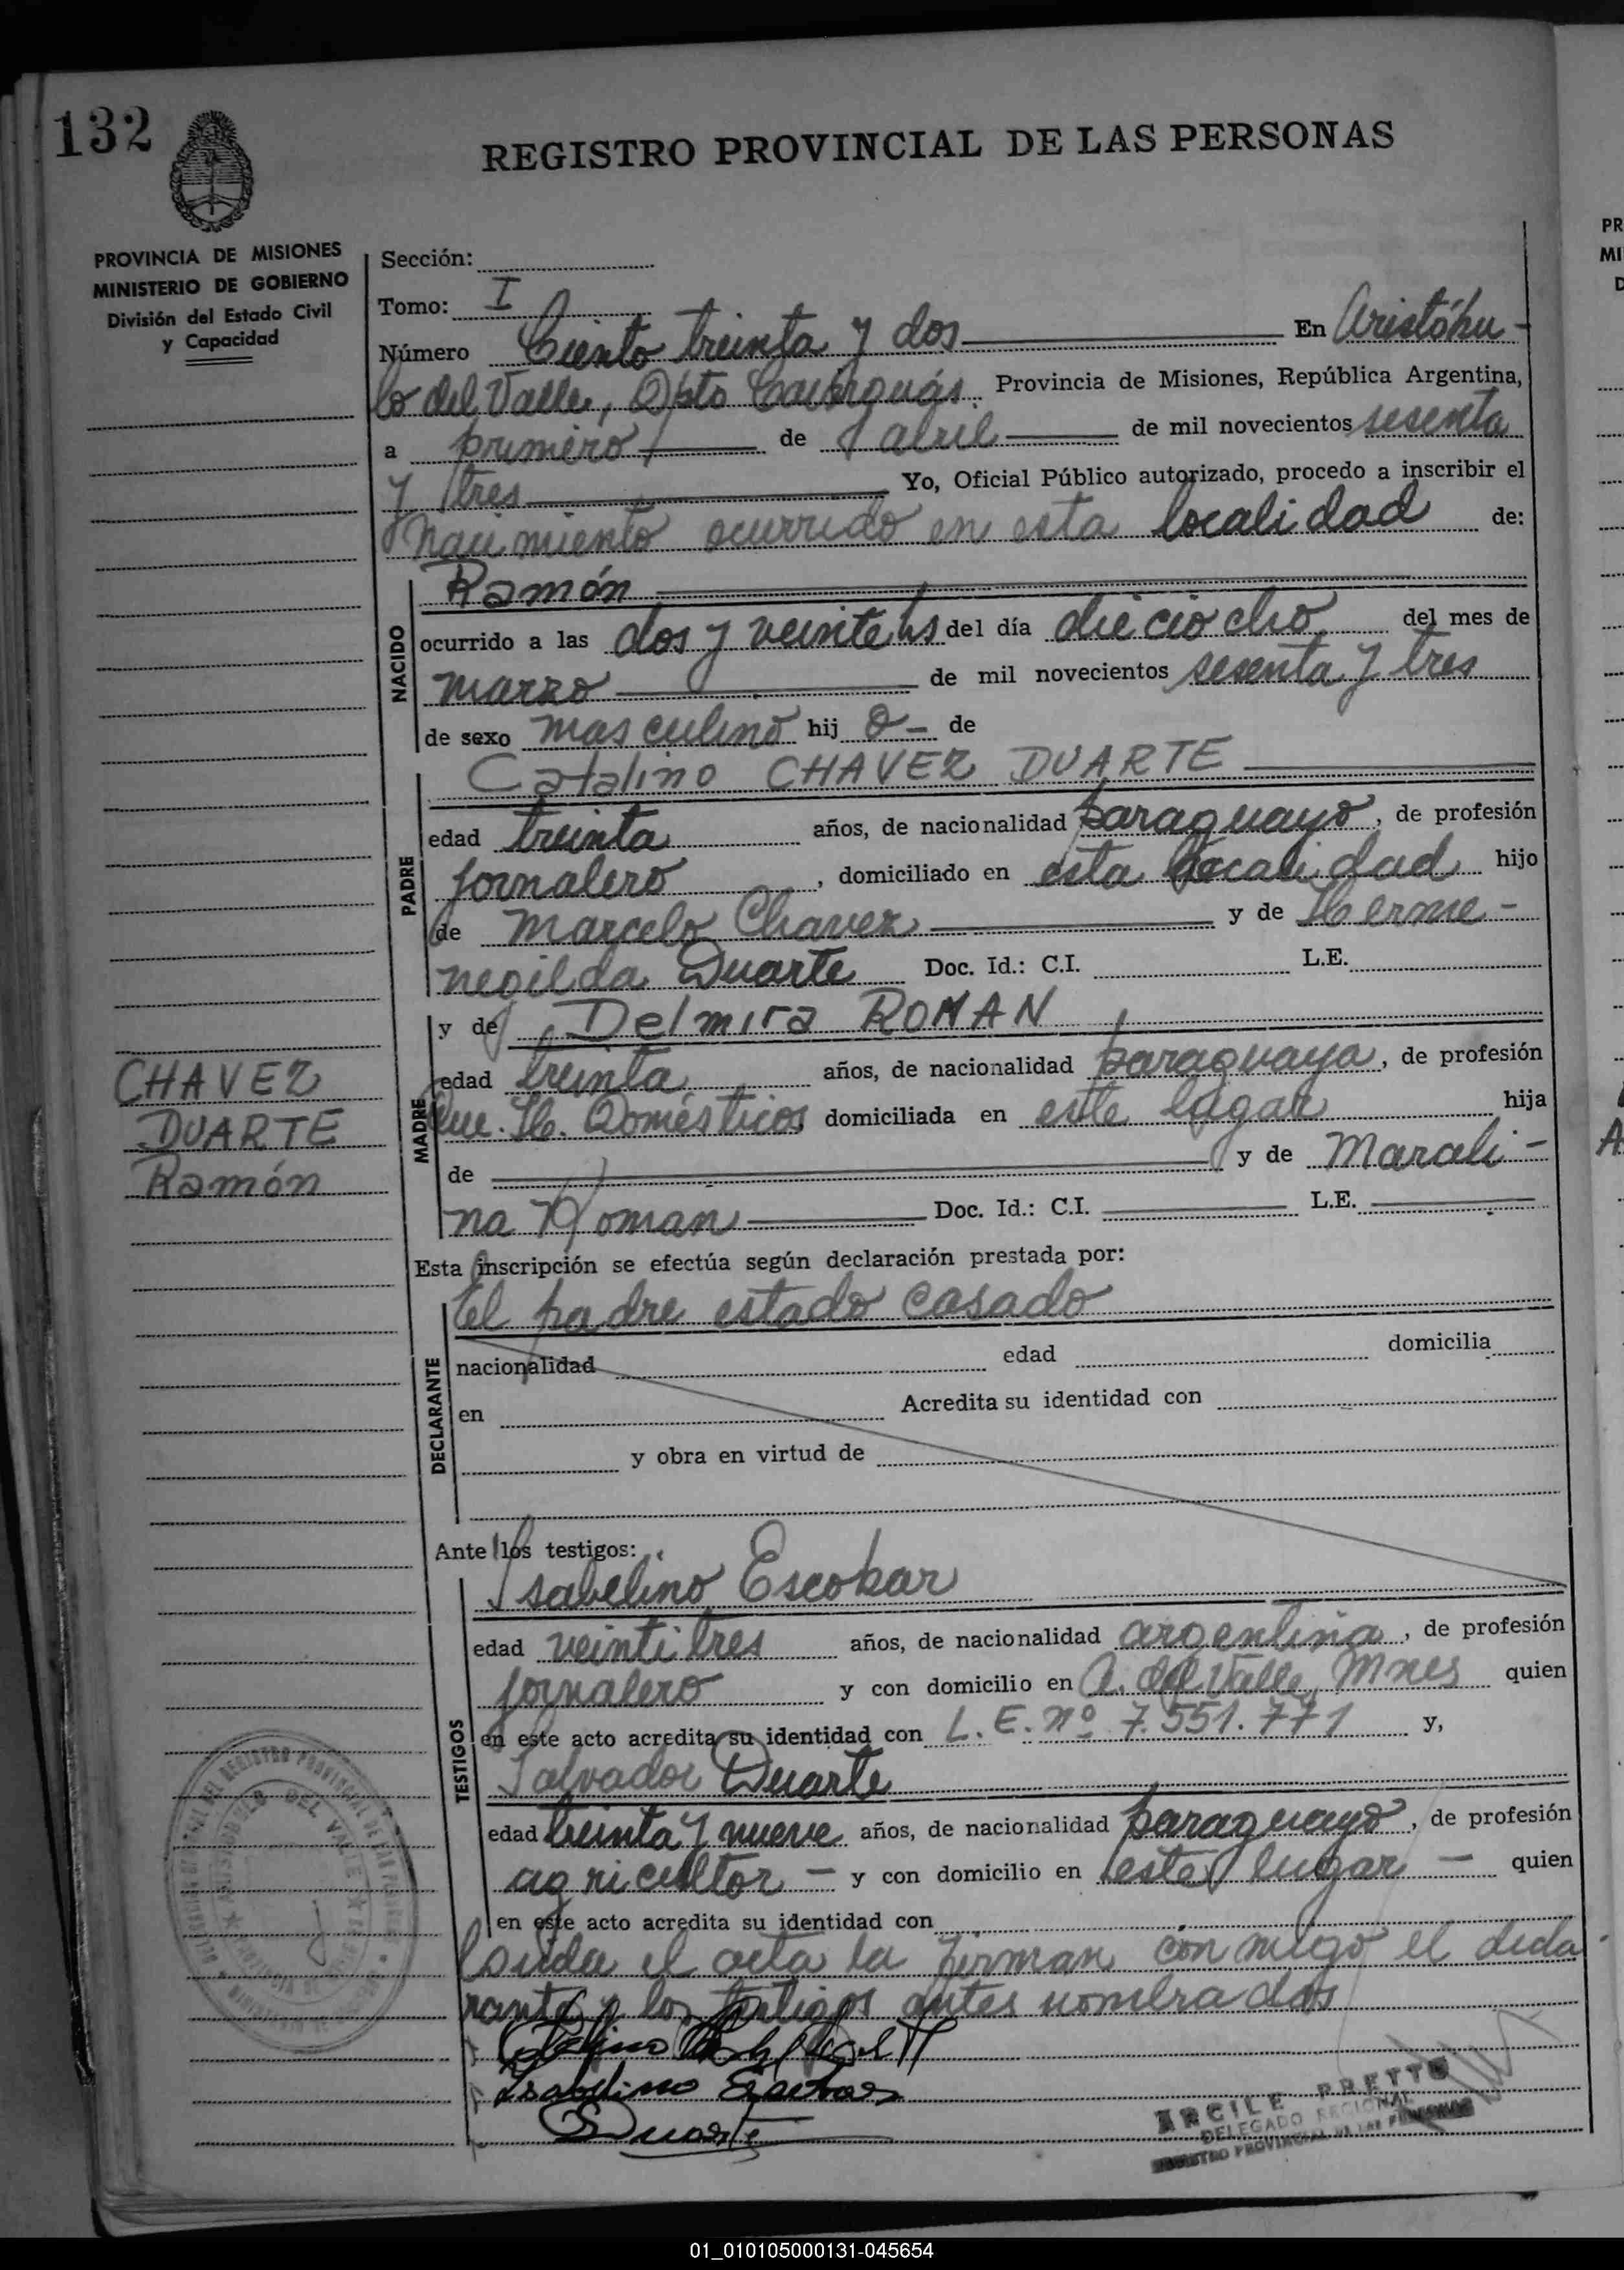 132
REGISTRO PROVINCIAL DE LAS PERSONAS
PROVINCIA DE MISIONES
MINISTERIO DE GOBIERNO
División del Estado Civil
y Capacidad
Sección:
Tomo: I
Número Ciento treinta y dos En Aristóbu-
lo del Valle, Dpto Cainguás. Provincia de Misiones, República Argentina,
a primero de abril de mil novecientos sesenta
y tres Yo, Oficial Público autorizado, procedo a inscribir el
Nacimiento ocurrido en esta localidad de:
NACIDO
Ramón
ocurrido a las dos y veinte hs del día dieciocho del mes de
marzo de mil novecientos sesenta y tres
de sexo masculino hij o- de
PADRE
Catalino CHAVEZ DUARTE
edad treinta años, de nacionalidad paraguayo, de profesión
jornalero, domiciliado en esta localidad hijo
de Marcelo Chavez y de Herme-
negilda Duarte Doc. Id.: C.I. L.E.
MADRE
y de Delmira ROMAN
edad treinta años, de nacionalidad paraguaya, de profesión
Que. H. Domésticos domiciliada en este lugar hija
de y de Marcali-
na Roman Doc. Id.: C.I. L.E.
CHAVEZ
DUARTE
Ramón
Esta inscripción se efectúa según declaración prestada por:
DECLARANTE
El padre estado casado
nacionalidad edad domicilia
en Acredita su identidad con
y obra en virtud de
Ante los testigos:
TESTIGOS
Isabelino Escobar
edad veintitres años, de nacionalidad argentina, de profesión
jornalero y con domicilio en A. del Valle, Mnes quien
en este acto acredita su identidad con L.E. nº 7.551.771 y,
Salvador Duarte
edad treinta y nueve años, de nacionalidad paraguayo, de profesión
agricultor - y con domicilio en este lugar - quien
en este acto acredita su identidad con
Leida el acta la firman conmigo el decla-
rante y los testigos antes nombrados
Isabelino Escobar
Duarte
ARCILE PRETTO
DELEGADO REGIONAL
REGISTRO PROVINCIAL DE LAS PERSONAS
01_010105000131-045654